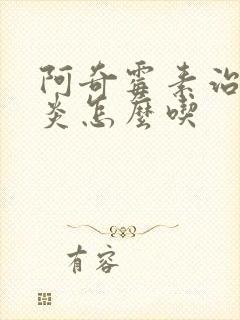 阿奇霉素治
炎怎麼喫
有容